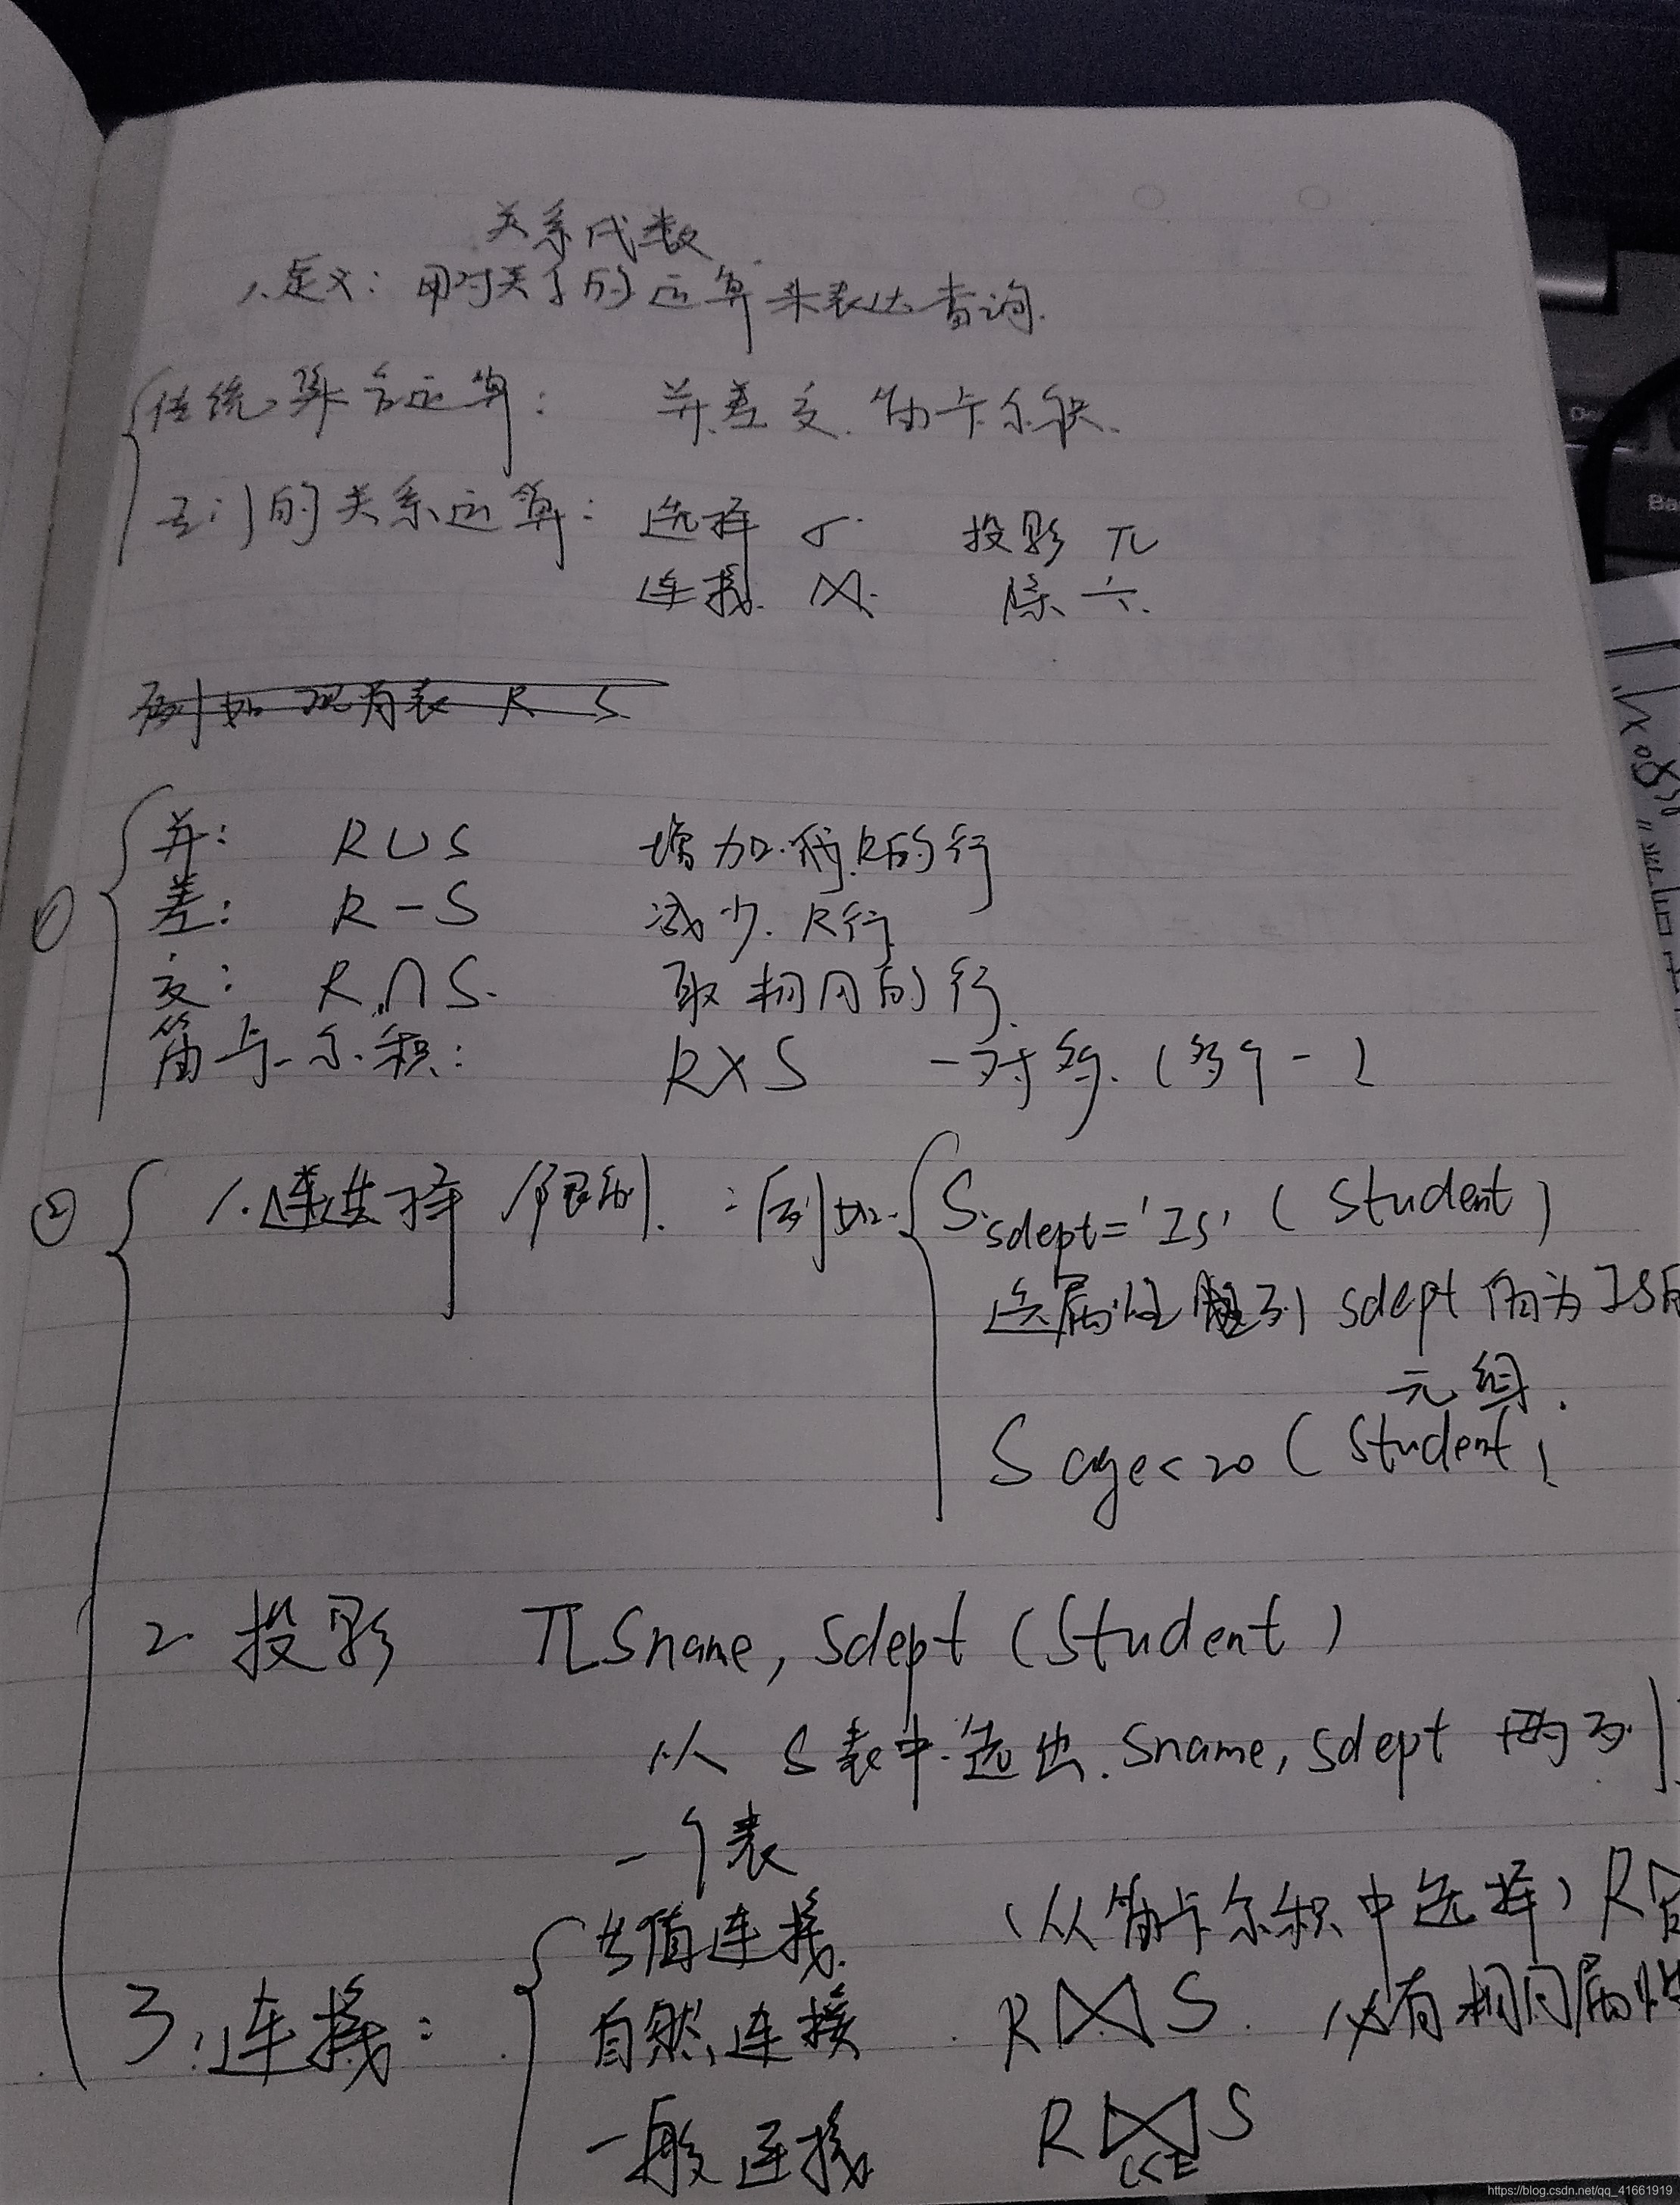 关系代数
1.定义：用对关系的运算来表达查询.
传统集合运算： 并.差.交.笛卡尔积.
专门的关系运算： 选择 σ 投影 π
连接 ⋈ 除 ÷
例如 现有表 R S
① 并： R∪S 增加 R的行
差： R－S 减少 R行
交： R∩S 取相同的行
笛卡尔积： R×S 一对多（多个一）
② 1.选择 /限制 ：例如 S sdept='IS' (Student)
选属性 列 sdept 值为IS的
元组.
S age<20 (Student)
2. 投影 π Sname, Sdept (Student)
从 S表中选出 Sname, Sdept 两列
一个表
等值连接 (从笛卡尔积中选择) R
3.连接： 自然连接 R⋈S 必有相同属性
一般连接 R⋈S
C<E
https://blog.csdn.net/qq_41661919